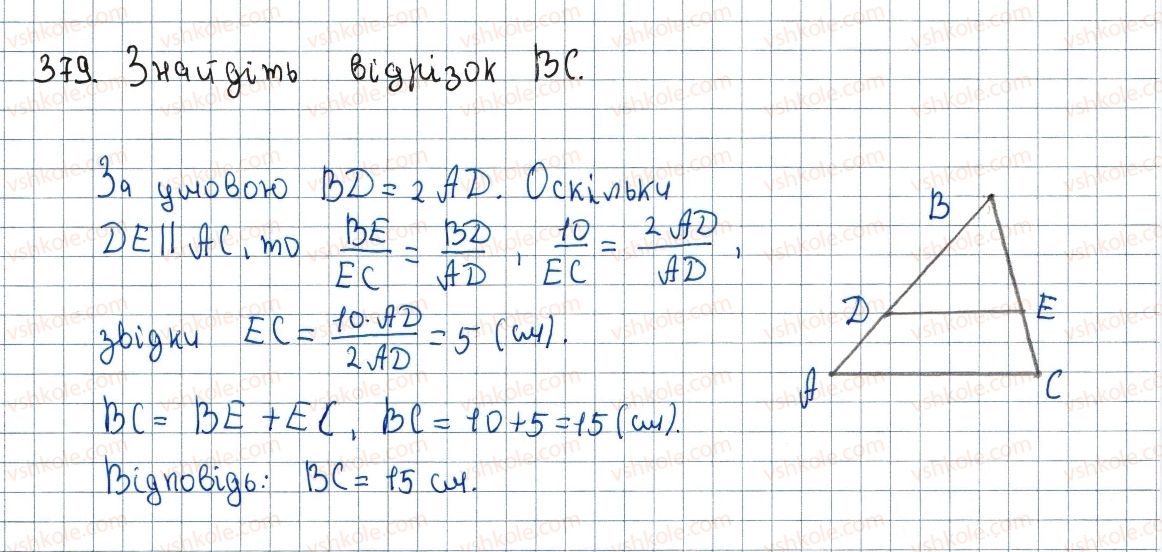 379. Знайдіть відрізок BC.
За умовою BD = 2 AD. Оскільки
DE || AC, то BE/EC = BD/AD, 10/EC = 2 AD/AD,
звідки EC = 10·AD/2 AD = 5 (см).
BC = BE + EC, BC = 10+5=15 (см).
Відповідь: BC = 15 см.
B
D
E
A
C